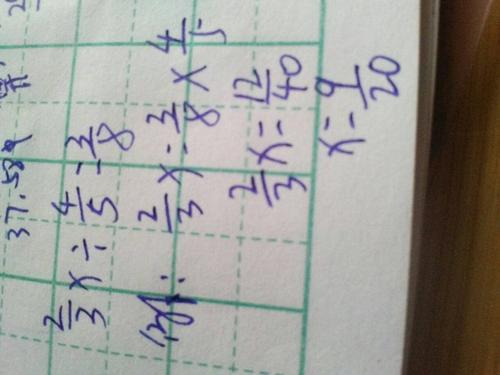 2/3 x ÷ 4/5 = 3/8
解: 2/3 x = 3/8 × 4/5
2/3 x = 12/40
x = 9/20